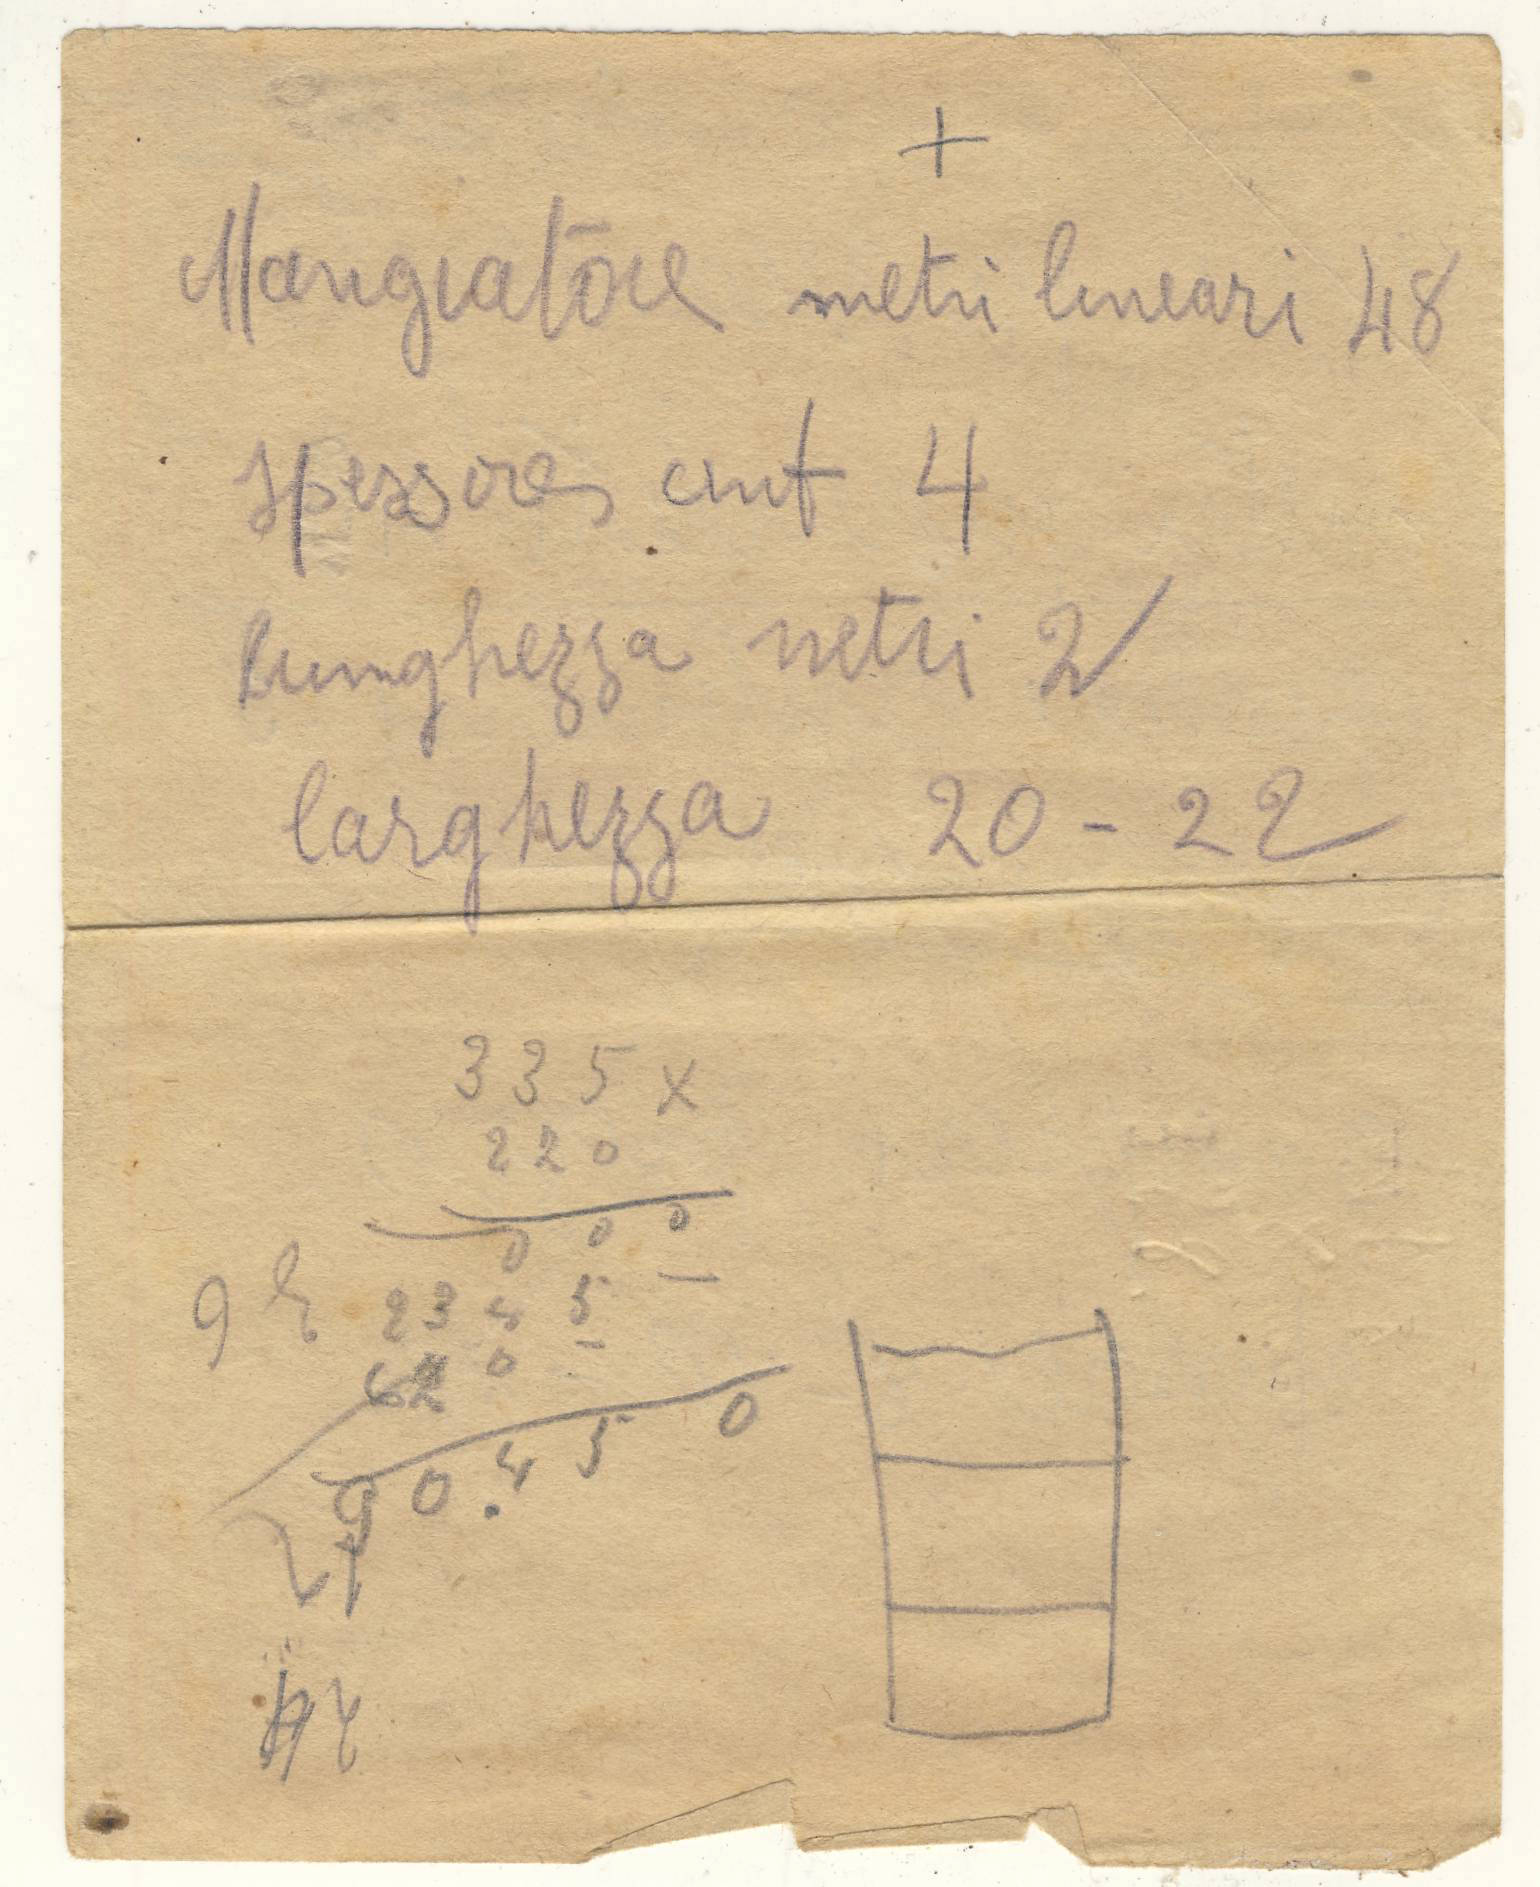 +
Mangiatōie metri lineari 48
spessores cmt 4
lunghezza metri 2
larghezza 20 - 22
335 x
220
000
2345 -
0 -
90.450